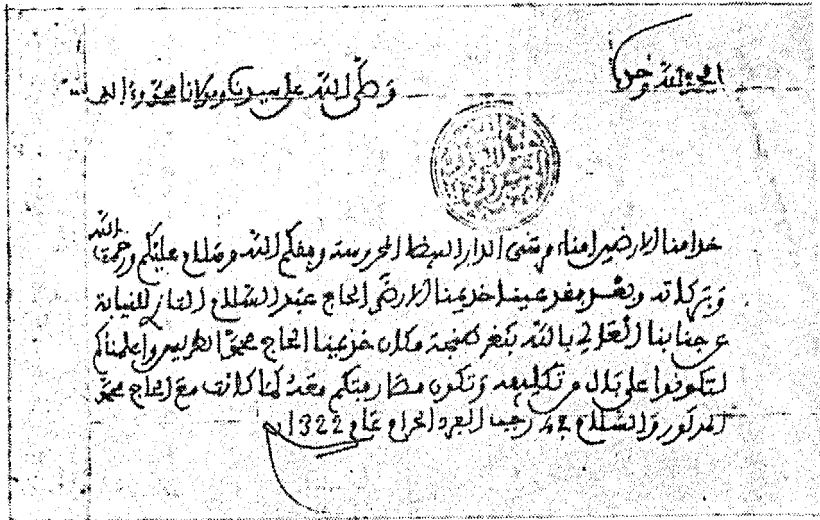 الحمد لله وحده
وصلى الله على سيدنا ومولانا محمد وآله
خدامنا الارضين امناء مرسى الدار البيضا المحروسة وفقكم الله وسلام عليكم ورحمت الله
وبركاته وبعد فقد عينا خديمنا الارضى الحاج عبد السلام التازي للنيابة
عن جنابنا العالي بالله بثغر طنجة مكان خديمنا الحاج محمد الطريس واعلمناكم
لتكونوا على بال من تكليفه وتكون مفاوضتكم معه كما كانت مع الحاج محمد
المذكور والسلام في رجب الفرد الحرام عام 1322